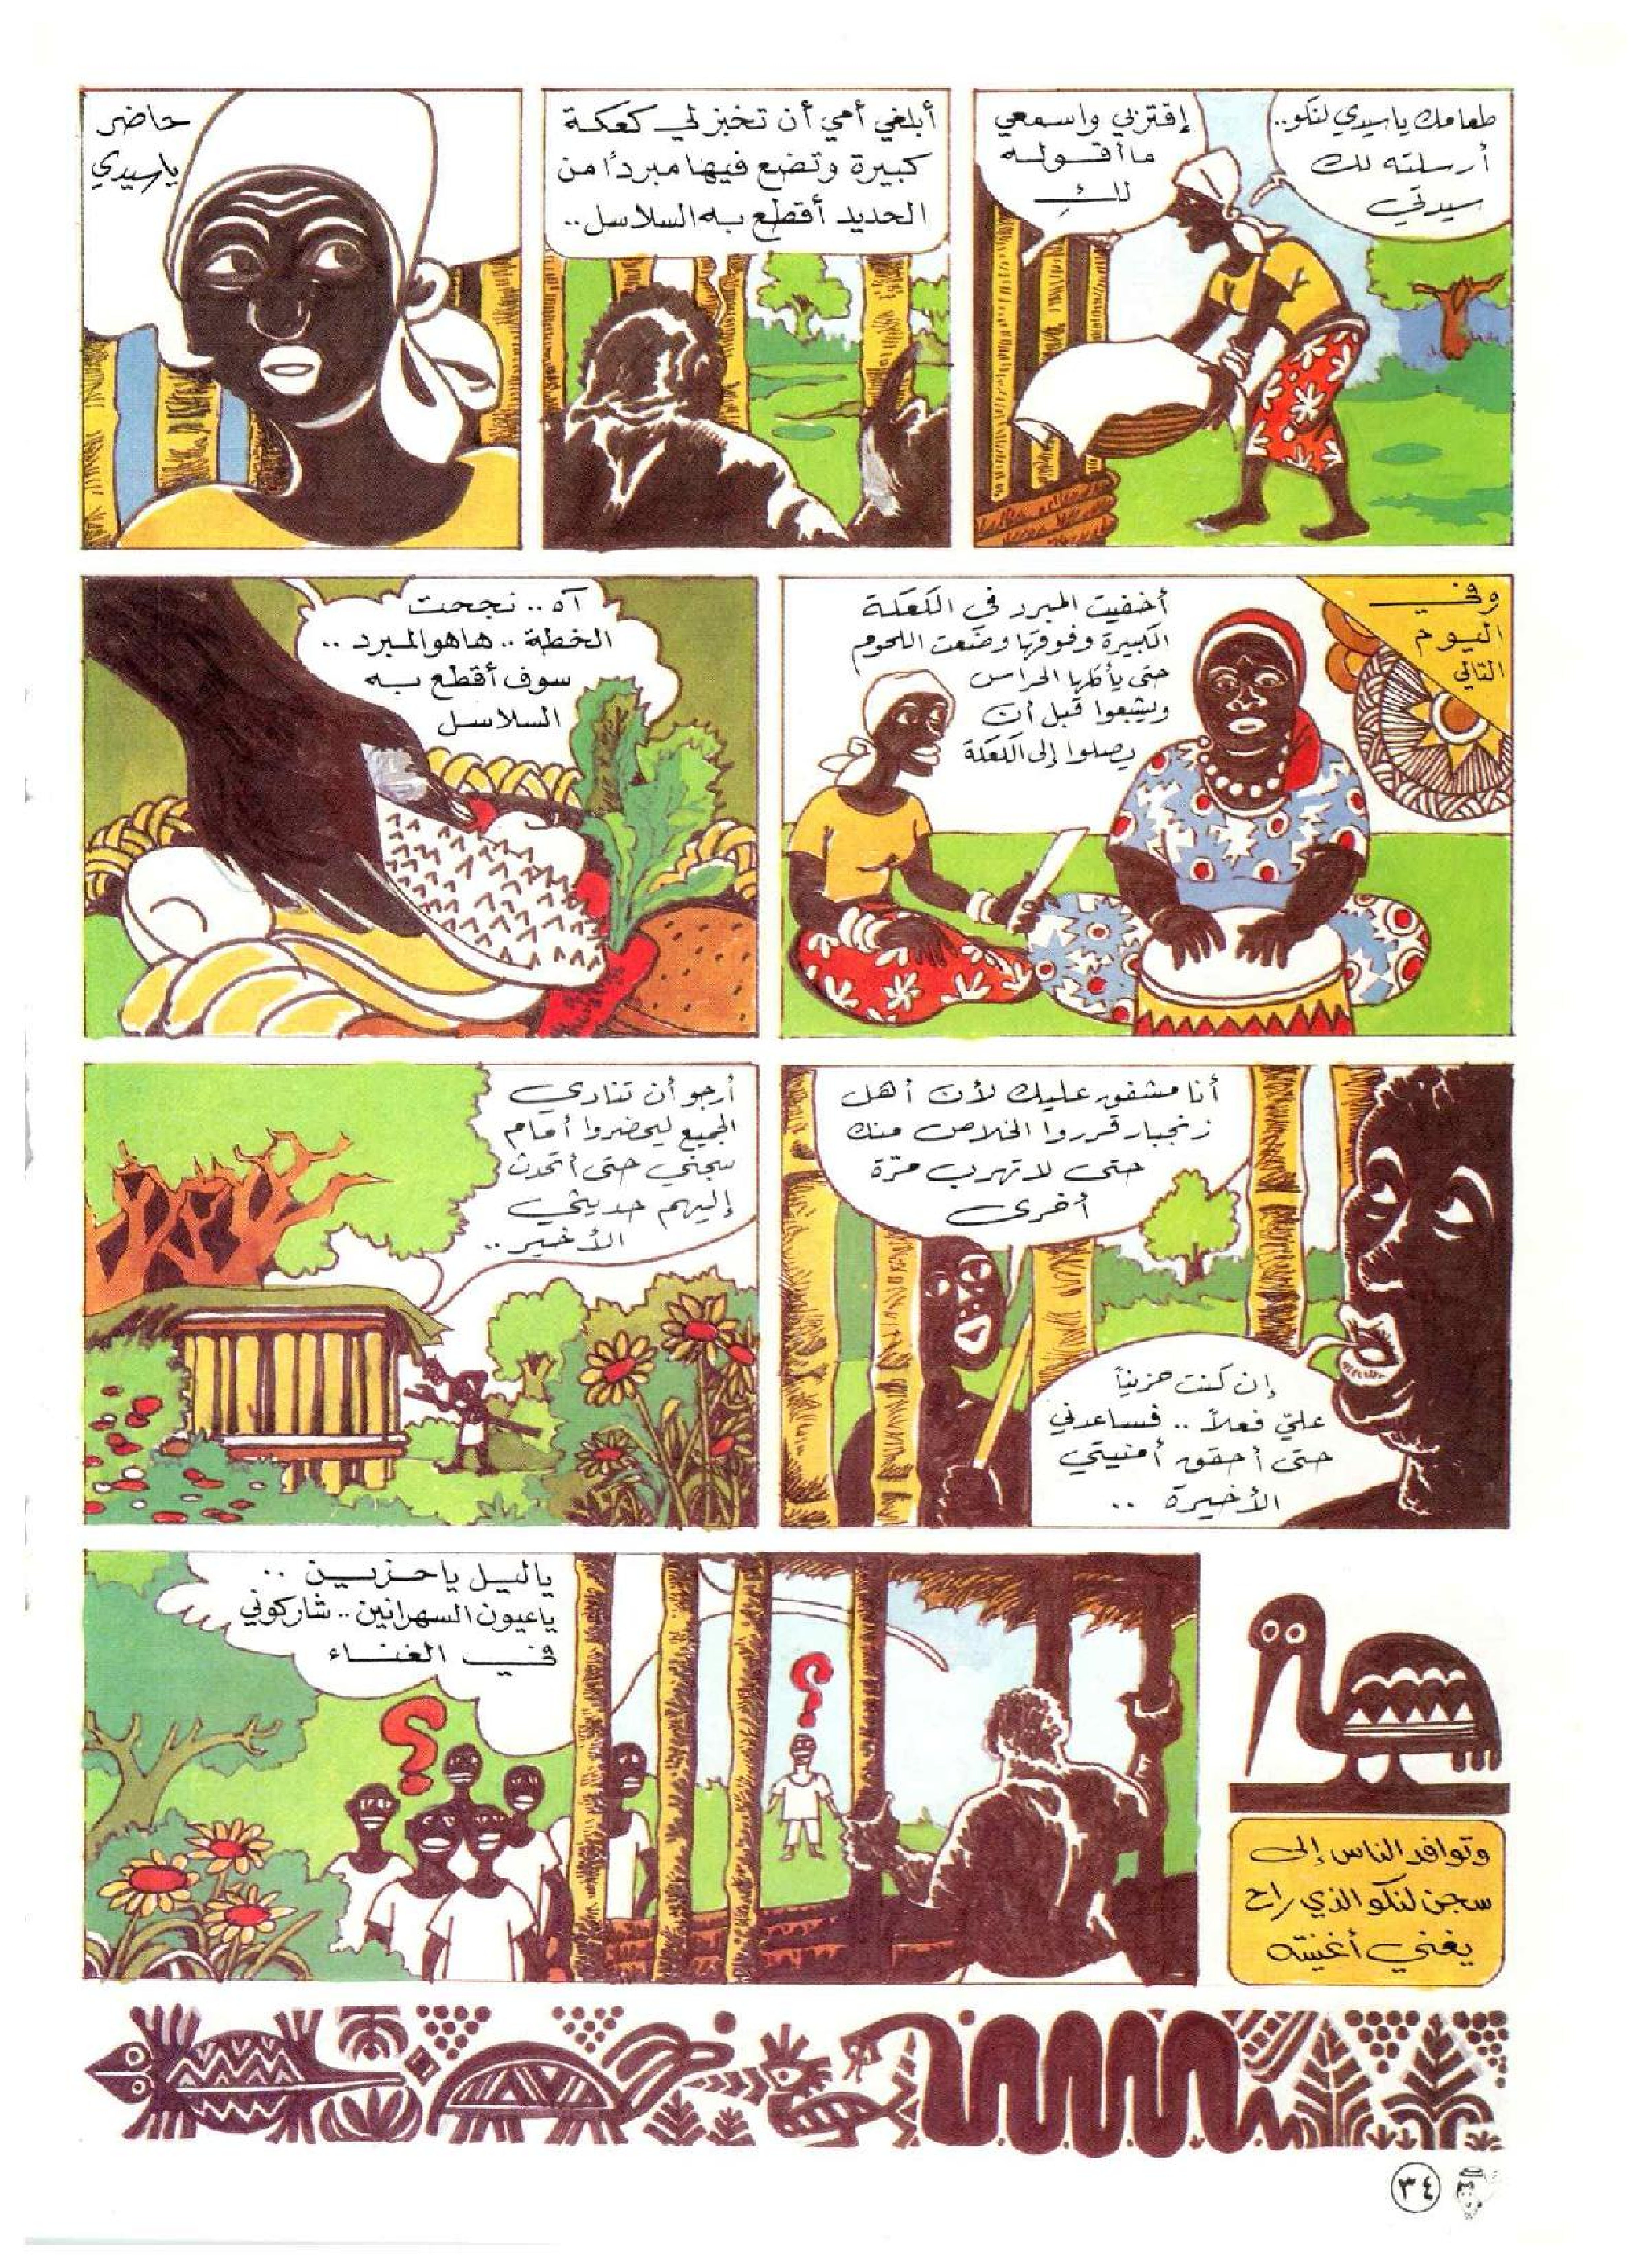 طعامك ياسيدي لنكو..
أرسلته لك
سيدتي
إقتربي واسمعي
ماأقوله
لكِ
أبلغي أمي أن تخبز لي كعكة
كبيرة وتضع فيها مبرداً من
الحديد أقطع به السلاسل..
حاضر
ياسيدي
وفي
اليوم
التالي
أخفيت المبرد في الكعكة
الكبيرة وفوقها وضعت اللحوم
حتى يأكلها الحراس
ويشبعوا قبل أن
يصلوا إلى الكعكة
آه.. نجحت
الخطة.. هاهو المبرد..
سوف أقطع به
السلاسل
أنا مشفق عليك لأن أهل
زنجبار قرروا الخلاص منك
حتى لا تهرب مرّة
أخرى
إن كنت حزيناً
عليّ فعلاً.. فساعدني
حتى أحقق أمنيتي
الأخيرة..
أرجو أن تنادي
الجميع ليحضروا أمام
سجني حتى أتحدث
إليهم حديثي
الأخير..
وتوافد الناس إلى
سجن لنكو الذي راح
يغني أغنيته
ياليل ياحزين..
ياعيون السهرانين.. شاركوني
في الغناء
؟
؟
٣٤